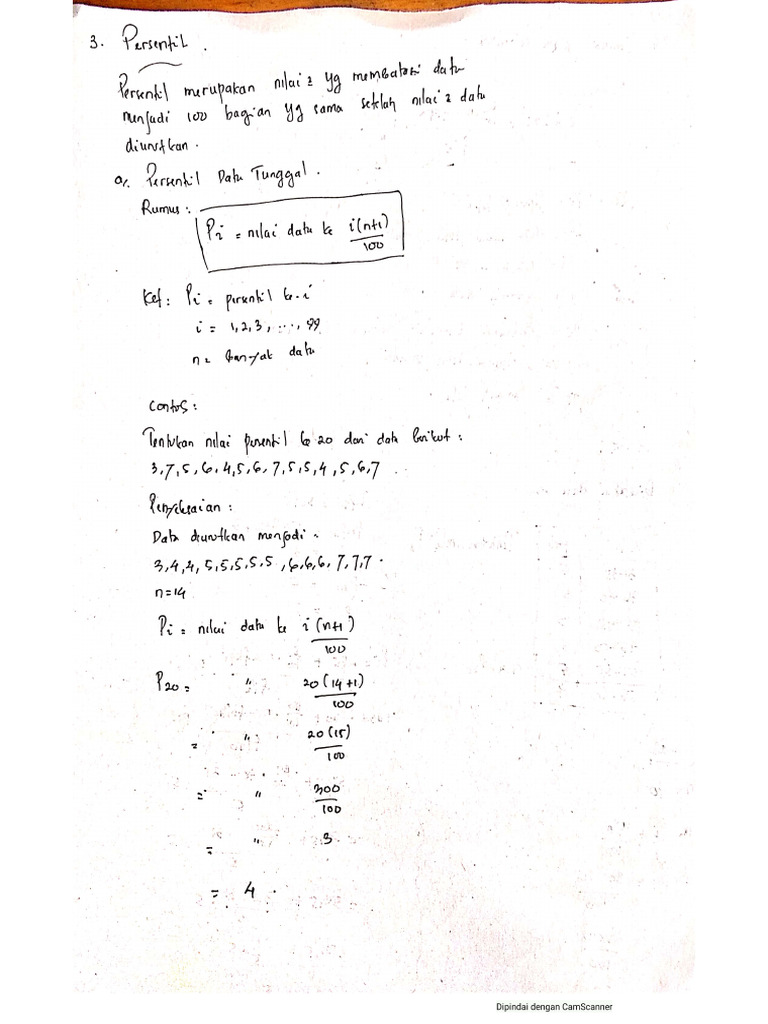 3. Persentil.
Persentil merupakan nilai2 yg membatasi data
menjadi 100 bagian yg sama setelah nilai2 data
diurutkan.
a. Persentil Data Tunggal.
Rumus: Pi = nilai data ke i(n+1)/100
Ket: Pi = persentil ke-i
i = 1,2,3, ..., 99
n = banyak data
Contoh:
Tentukan nilai persentil ke 20 dari data berikut:
3,7,5,6,4,5,6,7,5,5,4,5,6,7
Penyelesaian:
Data diurutkan menjadi:
3,4,4,5,5,5,5,5,6,6,6,7,7,7.
n=14
Pi = nilai data ke i(n+1)/100
P20 = " 20(14+1)/100
= " 20(15)/100
= " 300/100
= " 3
= 4.
Dipindai dengan CamScanner